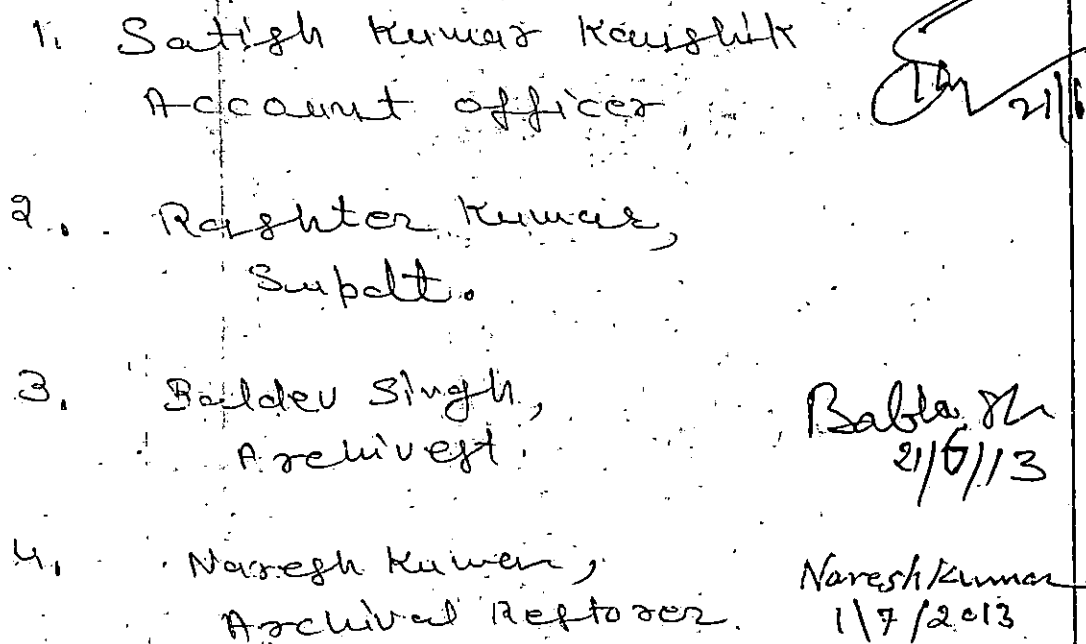 1. Satish Kumar Kaushik
Account officer
21/
2. Rashter Kumar,
Supdtt.
3. Baldev Singh,
Archivest.
Babla
21/6/13
4. Naresh Kumar,
Archival Restorer.
Naresh Kumar
1/7/2013